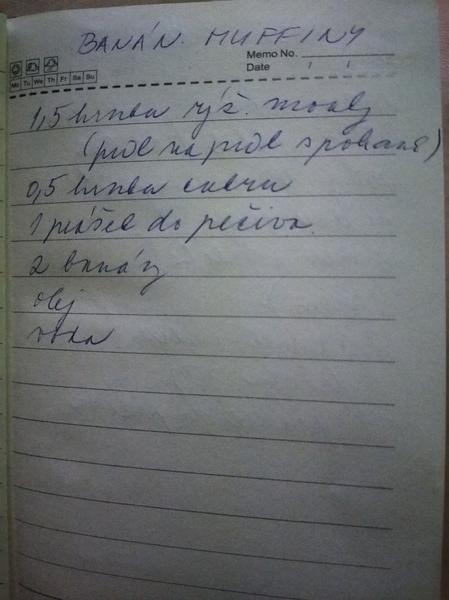 BANÁN. MUFFINY
Memo No.
Mo Tu We Th Fr Sa Su
Date
1,5 hrnka ryž. múky
(pol na pol s pohank)
0,5 hrnka cukru
1 prášok do pečiva
2 banány
olej
voda